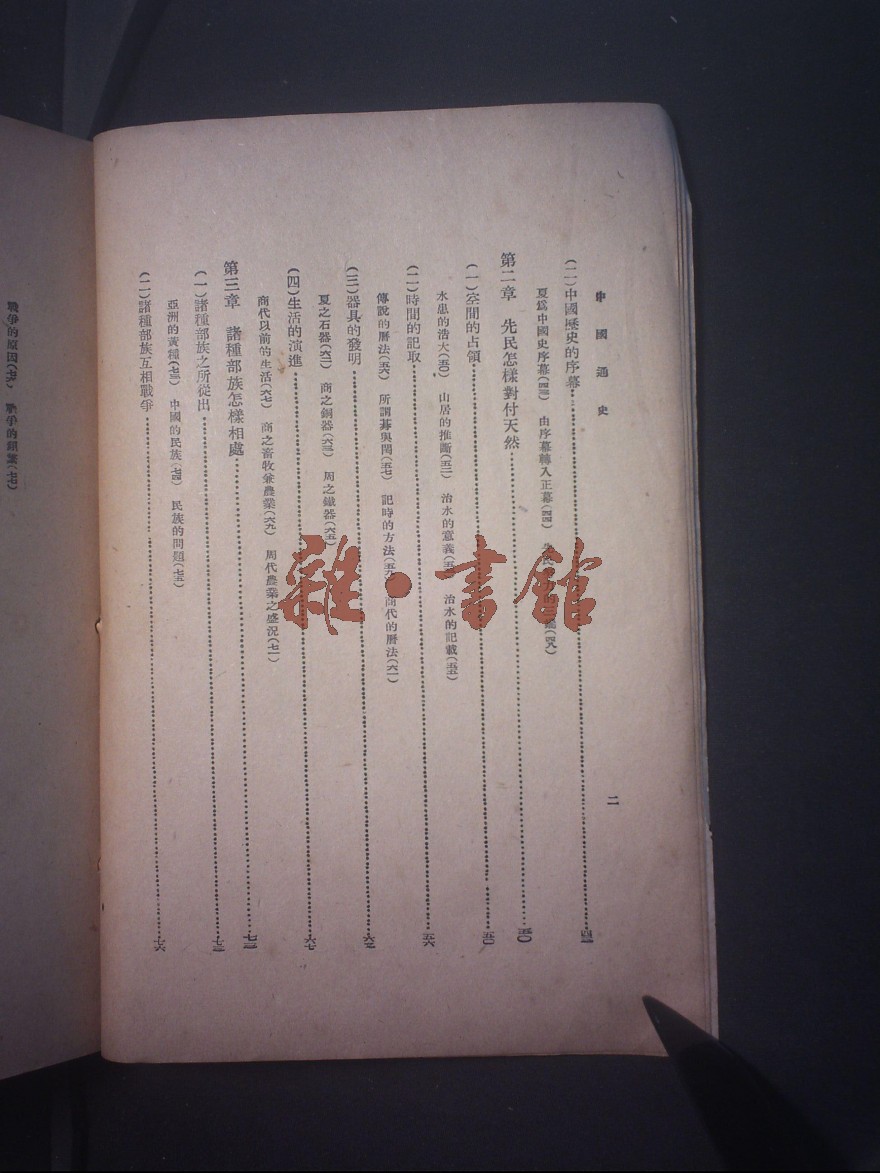 中國通史
二
(二)中國歷史的序幕……四三
夏爲中國史序幕(四三) 由序幕轉入正幕(四四) (四八)
第二章 先民怎樣對付天然……五〇
(一)空間的占領……五〇
水患的浩大(五〇) 山居的推斷(五二) 治水的意義 治水的記載(五五)
(二)時間的記取……五六
傳說的曆法(五六) 所謂朞與閏(五七) 記時的方法 商代的曆法(六一)
(三)器具的發明……六二
夏之石器(六二) 商之銅器(六三) 周之鐵器(六五)
(四)生活的演進……六七
商代以前的生活(六七) 商之畜牧兼農業(六九) 周代農業之盛況(七一)
第三章 諸種部族怎樣相處……七三
(一)諸種部族之所從出……七三
亞洲的黃種(七三) 中國的民族(七四) 民族的問題(七五)
(二)諸種部族互相戰爭……七六
戰爭的原因(七六) 戰爭的
雜·書館